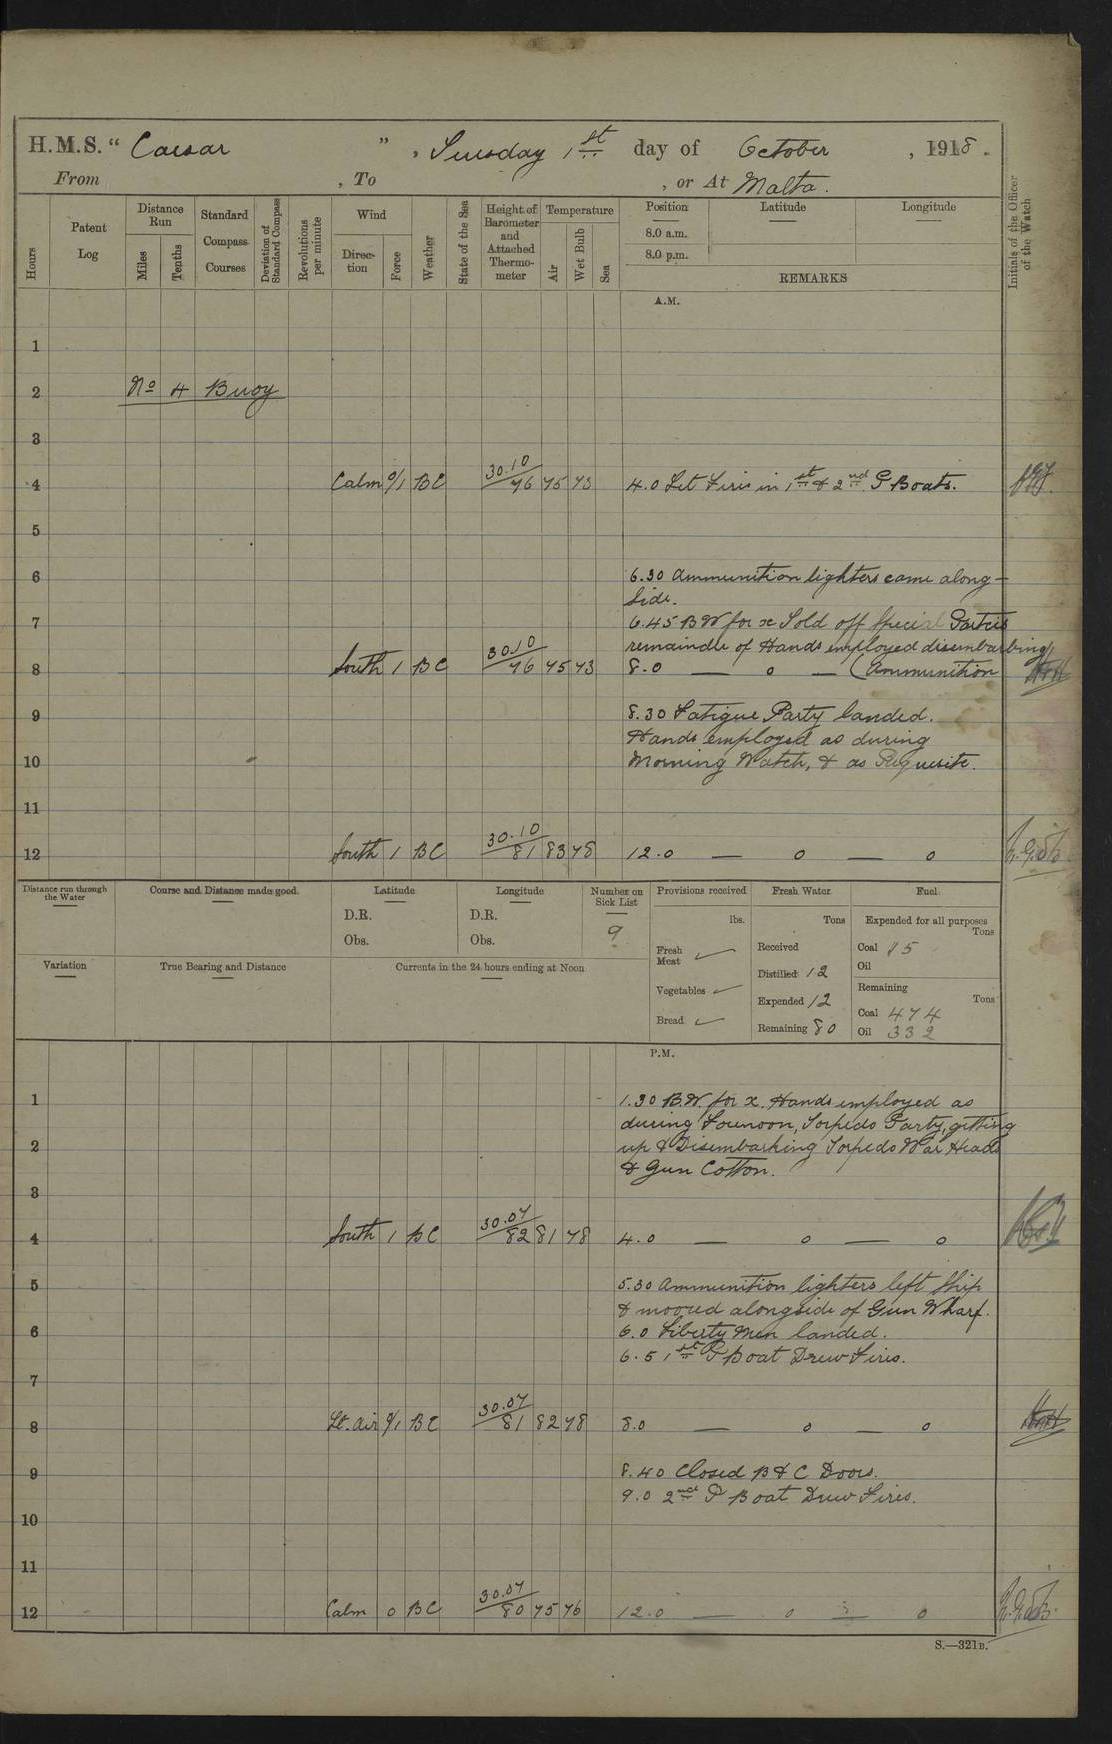 H.M.S. “ Caesar ” , Tuesday 1st day of October , 1918 .
From , To , or At Malta .
Hours
Patent Log
Distance Run
Miles
Tenths
Standard Compass Courses
Deviation of Standard Compass
Revolutions per minute
Wind
Direction
Force
Weather
State of the Sea
Height of Barometer and Attached Thermometer
Temperature
Air
Wet Bulb
Sea
Position
8.0 a.m.
8.0 p.m.
Latitude
Longitude
REMARKS
Initials of the Officer of the Watch
A.M.
1
2 No 4 Buoy
3
4 Calm 0/1 BC 30.10/76 75 73 4.0 Let Fires in 1st & 2nd P Boats.
5
6 6.30 Ammunition lighters came along-
side.
7 6.45 BW for x Told off Special Parties
remainder of Hands employed disembarking
8 South 1 BC 30.10/76 75 73 8.0 — o — (Ammunition
9 8.30 Fatigue Party landed.
Hands employed as during
10 Morning Watch, & as Requisite.
11
12 South 1 BC 30.10/81 83 78 12.0 — o — o
Distance run through the Water
Course and Distance made good
Latitude
D.R.
Obs.
Longitude
D.R.
Obs.
Number on Sick List
9
Provisions received
lbs.
Fresh Meat ✓
Vegetables ✓
Bread ✓
Fresh Water
Tons
Received
Distilled 12
Expended 12
Remaining 80
Fuel
Expended for all purposes
Tons
Coal 15
Oil
Remaining
Tons
Coal 474
Oil 332
Variation
True Bearing and Distance
Currents in the 24 hours ending at Noon
P.M.
1 1.30 B.W. for x. Hands employed as
during Forenoon, Torpedo Party, getting
2 up & Disembarking Torpedo War Heads
& Gun Cotton.
3
4 South 1 BC 30.07/82 81 78 4.0 — o — o
5 5.30 Ammunition lighters left Ship
& moored alongside of Gun Wharf.
6 6.0 Liberty Men landed.
6.5 1st P Boat Drew Fires.
7
8 Lt. air 0/1 BC 30.07/81 82 78 8.0 — o — o
9 8.40 Closed B & C Doors.
9.0 2nd P Boat Drew Fires.
10
11
12 Calm 0 BC 30.07/80 75 76 12.0 — o — o
S.—321B.